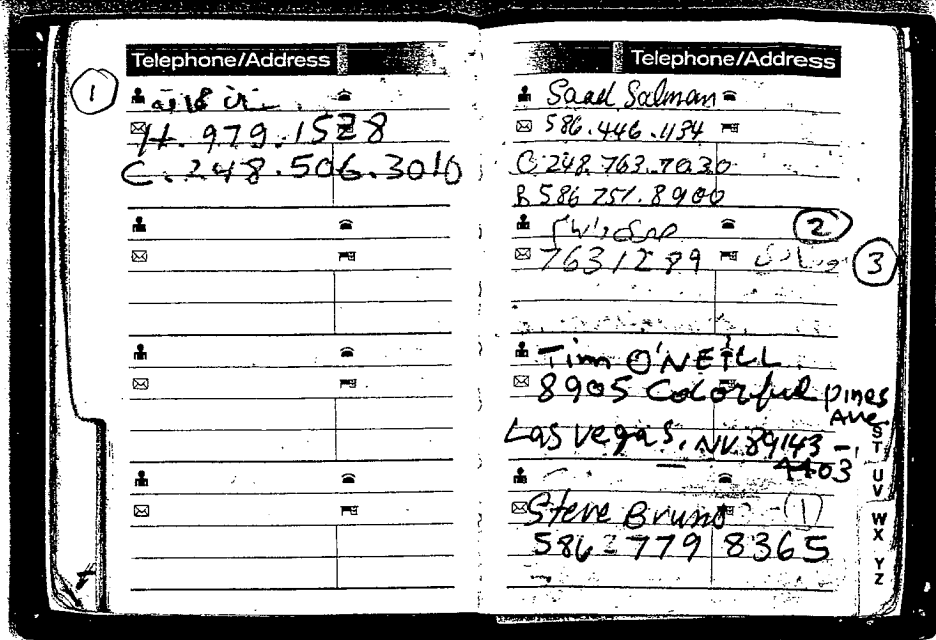 Telephone/Address
1
H. 979.1528
C. 248.506.3010
Telephone/Address
Saad Salman
586.446.1134
C 248.763.7030
B 586 751.8900
2
7631289
3
Tim O'NEILL
8905 Colorful Pines
Ave
Las Vegas, NV 89143-
4403
Steve Bruno (1)
586 779 8365
S
T
U
V
W
X
Y
Z